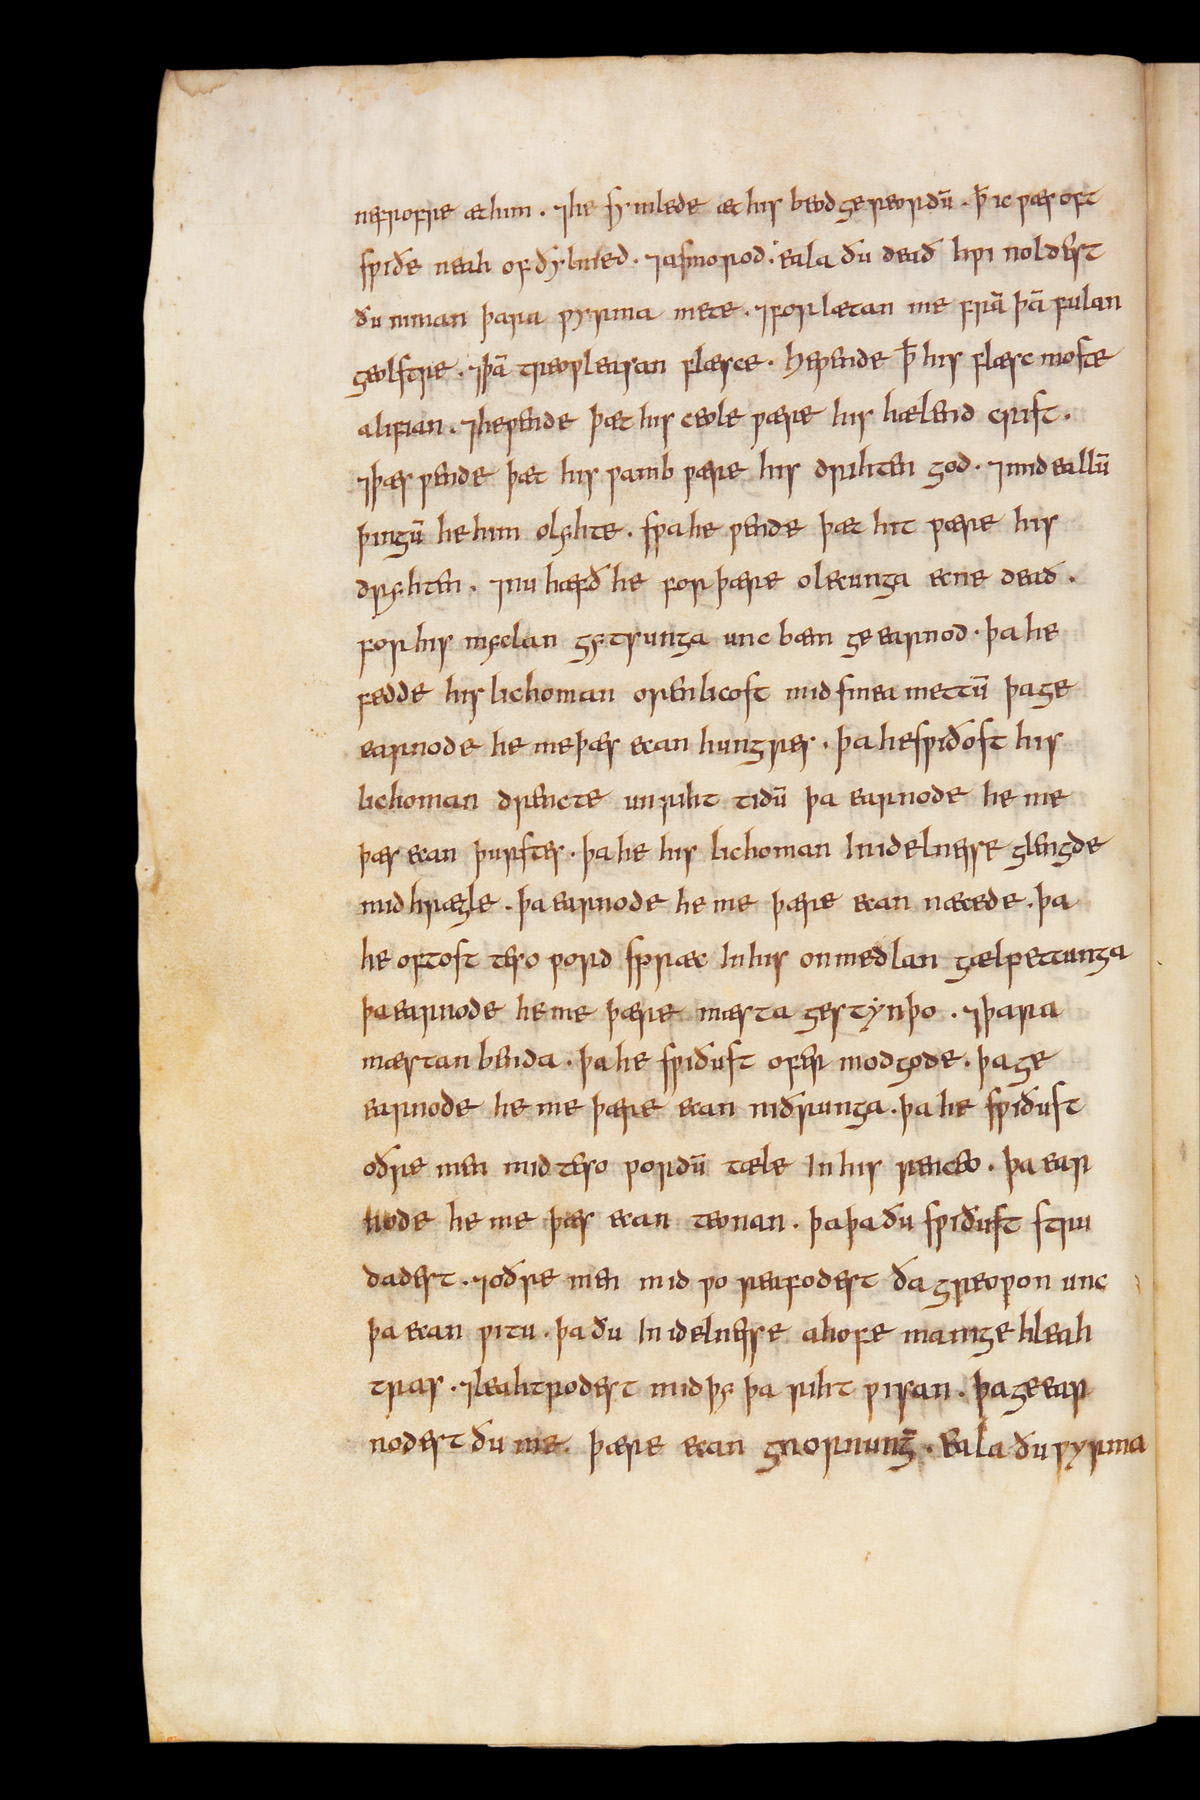 næfroferre æthim · ⁊he symlede æt his beodgereordū · ꝥ ic ƿæs oft
sƿiðe neah ofðylmed · ⁊asmorod · eala ðu deað hƿi noldest
ðu niman þara ƿyrma mete · ⁊forlætan me frā þā fulan
geolstre · ⁊þā treoƿleasan flæsce · heƿende ꝥ his flæsc moste
alifian · ⁊heƿende þæt his ceole ƿære his hælend crist ·
⁊þæs ƿende þæt his ƿamb ƿære his drihten god · ⁊mid eallū
þingū he him olehte · sƿa he ƿende þæt hit ƿære his
dryhten · ⁊nu hæfð he for þære olecunga ecne deað ·
for his myclan gytsunga unc bæm geearnod · þa he
fedde his lichoman orenlicost mid smeamettū þage
earnode he me þæs ecan hungres · þa he sƿiðost his
lichoman drencte unriht tidū þa earnode he me
þæs ecan þurstes · þa he his lichoman In idelnesse glengde
mid hrægle · þa earnode he me þære ecan næcede · þa
he oftost teso ƿord sƿræc In his onmedlan gælƿettunga
þa earnode he me þære mæsta gestynþo · ⁊þara
mæstan benda · þa he sƿiðust ofer modgode · þa ge
earnode he me þære ecan niðrunga · þa he sƿiðust
oðre men mid teso ƿordū tæle In his renceo · þa ear
node he me þæs ecan teonan · þa þa ðu sƿiðust stru
dadest · ⁊oðre men mid ƿo reafodest ða greoƿon unc
þa ecan ƿitu · þa ðu In idelnesse ahofe mænige hleah
tras · ⁊leahtrodest mid þy þa riht ƿisan · þa geear
nodest ðu me þære ecan gnornung̅ · Eala ðu ƿyrma